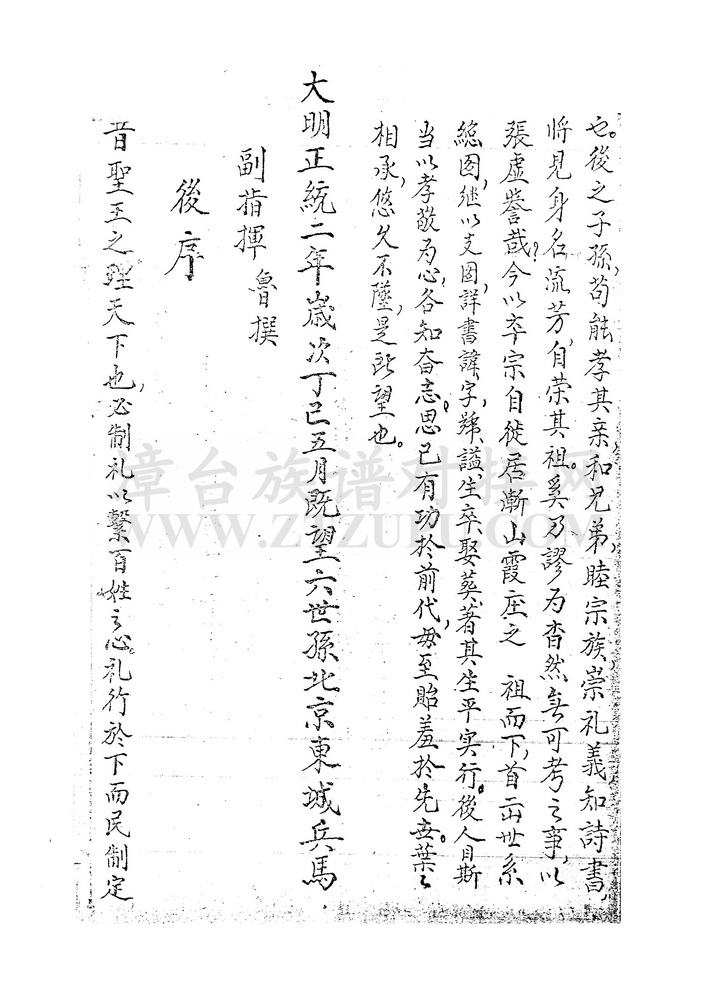 也。後之子孫，苟能孝其亲和兄弟，睦宗族崇礼義知詩書，
将見身名流芳，自荣其祖。奚乃謬为杳然無可考之事，以
張虚誉哉？今以卒宗自徙居漸山霞庄之 祖而下，首六世系
總图，继以支图，詳書諱，字，號，謚，生卒娶葬，著其生平实行。後人目斯
当以孝敬为心，各知奋志。思已有功於前代，毋至貽羞於先世。葉々
相承，悠久不墜，是所望也。
大明正統二年嵗次丁巳五月既望六世孫北京東城兵馬
副指揮 魯撰
後序
昔聖王之理天下也，必制礼以繫百姓之心。礼行於下而民制定
樟台族谱对接网
WWW.ZTZUPU.COM